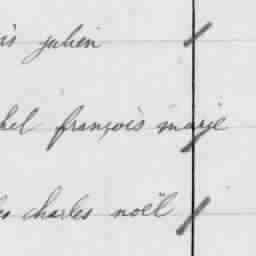 julien
françois marie
charles noël